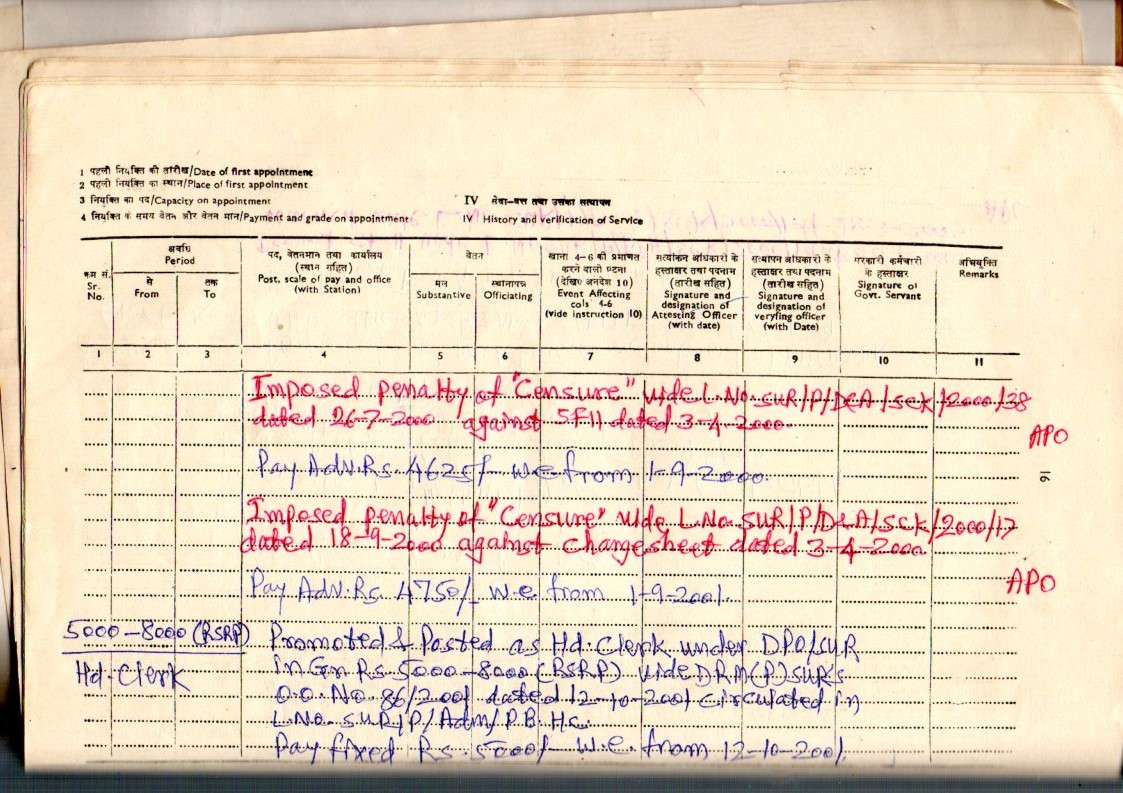 1 पहली नियुक्ति की तारीख/Date of first appointment
2 पहली नियुक्ति का स्थान/Place of first appointment
3 नियुक्ति का पद/Capacity on appointment
4 नियुक्ति के समय वेतन और वेतन मान/Payment and grade on appointment
IV सेवा-वृत्त तथा उसका सत्यापन
IV History and verification of Service
क्रम सं.
Sr.
No.
अवधि
Period
से
From
तक
To
पद, वेतनमान तथा कार्यालय
(स्थान सहित)
Post, scale of pay and office
(with Station)
वेतन
मूल
Substantive
स्थानापन्न
Officiating
खाना 4-6 को प्रभावित
करने वाली घटना
(देखिए अनुदेश 10)
Event Affecting
cols 4-6
(vide instruction 10)
सत्यांकन अधिकारी के
हस्ताक्षर तथा पदनाम
(तारीख सहित)
Signature and
designation of
Attesting Officer
(with date)
सत्यापन अधिकारी के
हस्ताक्षर तथा पदनाम
(तारीख सहित)
Signature and
designation of
veryfing officer
(with Date)
सरकारी कर्मचारी
के हस्ताक्षर
Signature of
Govt. Servant
अभियुक्ति
Remarks
1 2 3 4 5 6 7 8 9 10 11
Imposed penalty of "Censure" vide L.No. SUR/P/D&A/SCK/2000/38
dated 26-7-2000 against SF11 dated 3-4-2000
APO
Pay Adv. Rs. 4625/- w.e from 1-9-2000.
16
Imposed penalty of "Censure" vide L.No. SUR/P/D&A/SCK/2000/17
dated 18-9-2000 against Chargesheet dated 3-4-2000
APO
Pay Adv. Rs. 4750/- w.e. from 1-9-2001.
5000-8000 (RSRP)
Hd. Clerk
Promoted & Posted as Hd. Clerk under DPO/SUR
in Grn Rs. 5000-8000 (RSRP) vide DRM(P)SUR's
O.O. No 86/2001 dated 12-10-2001 circulated in
L.No. SUR/P/Adm/P.B. Hc.
Pay fixed Rs. 5000/- w.e. from 12-10-2001.